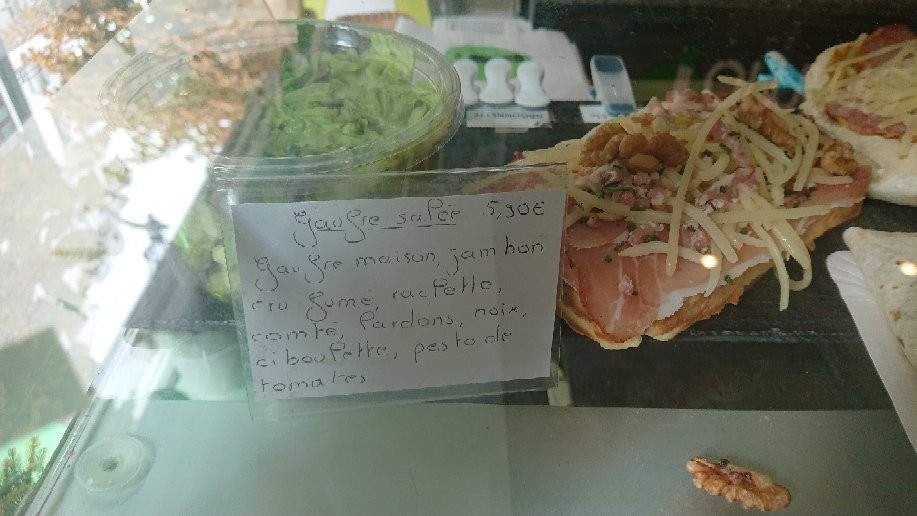 Gaufre salée 5,90€
Gaufre maison, jambon
cru fumé, raclette,
comté, lardons, noix,
ciboulette, pesto de
tomates